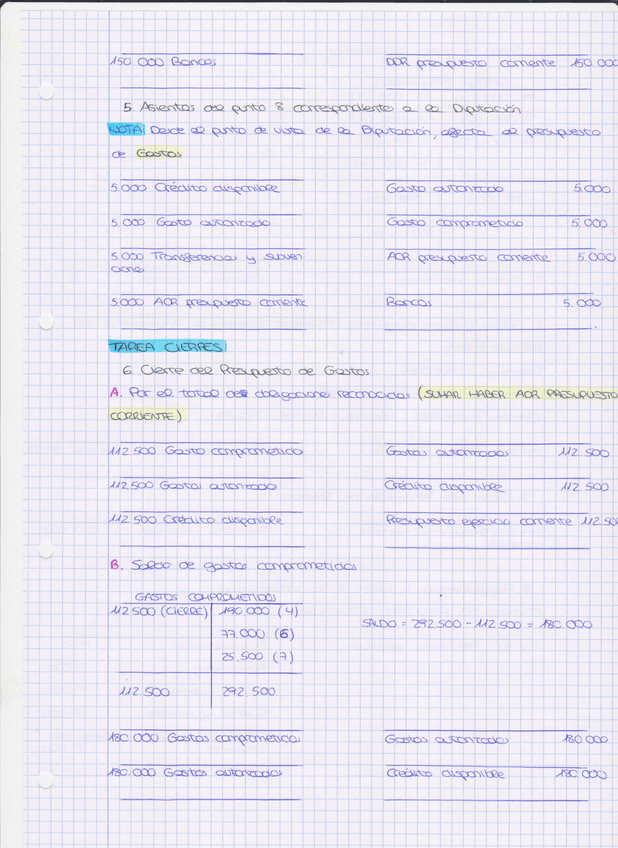 150.000 Bancos DDR presupuesto corriente 150.000
5. Asientos del punto 8 correspondiente a la Diputación
NOTA: Desde el punto de vista de la Diputación, afecta al presupuesto
de Gastos
5.000 Crédito disponible Gasto autorizado 5.000
5.000 Gasto autorizado Gasto comprometido 5.000
5.000 Transferencias y subven AOR presupuesto corriente 5.000
ciones
5.000 AOR presupuesto corriente Bancos 5.000
TAREA CIERRES
6. Cierre del Presupuesto de Gastos
A. Por el total de obligaciones reconocidas (SUMAR HABER AOR PRESUPUESTO
CORRIENTE)
112.500 Gasto comprometido Gastos autorizados 112.500
112.500 Gastos autorizado Crédito disponible 112.500
112.500 Crédito disponible Presupuesto ejercicio corriente 112.50
B. Saldo de gastos comprometidos
GASTOS COMPROMETIDOS
112.500 (CIERRE) 190.000 (4)
77.000 (6)
25.500 (7)
SALDO = 292.500 - 112.500 = 180.000
112.500 292.500
180.000 Gastos comprometidos Gastos autorizados 180.000
180.000 Gastos autorizados Crédito disponible 180.000